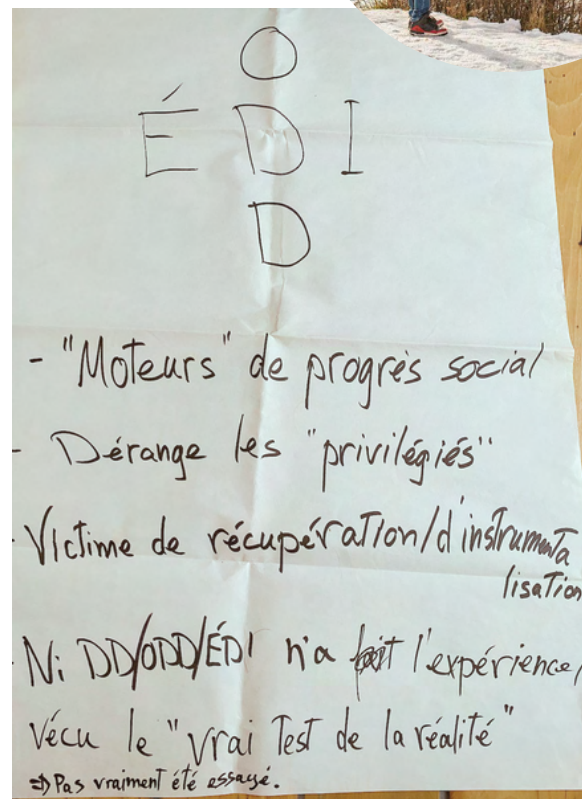 O
É D I
D
- "Moteurs" de progrès social
- Dérange les "privilégiés"
- Victime de récupération/d'instrumenta
lisation
- Ni DD/ODD/ÉDI n'a fait l'expérience/
vécu le "vrai test de la réalité"
⇒ Pas vraiment été essayé.